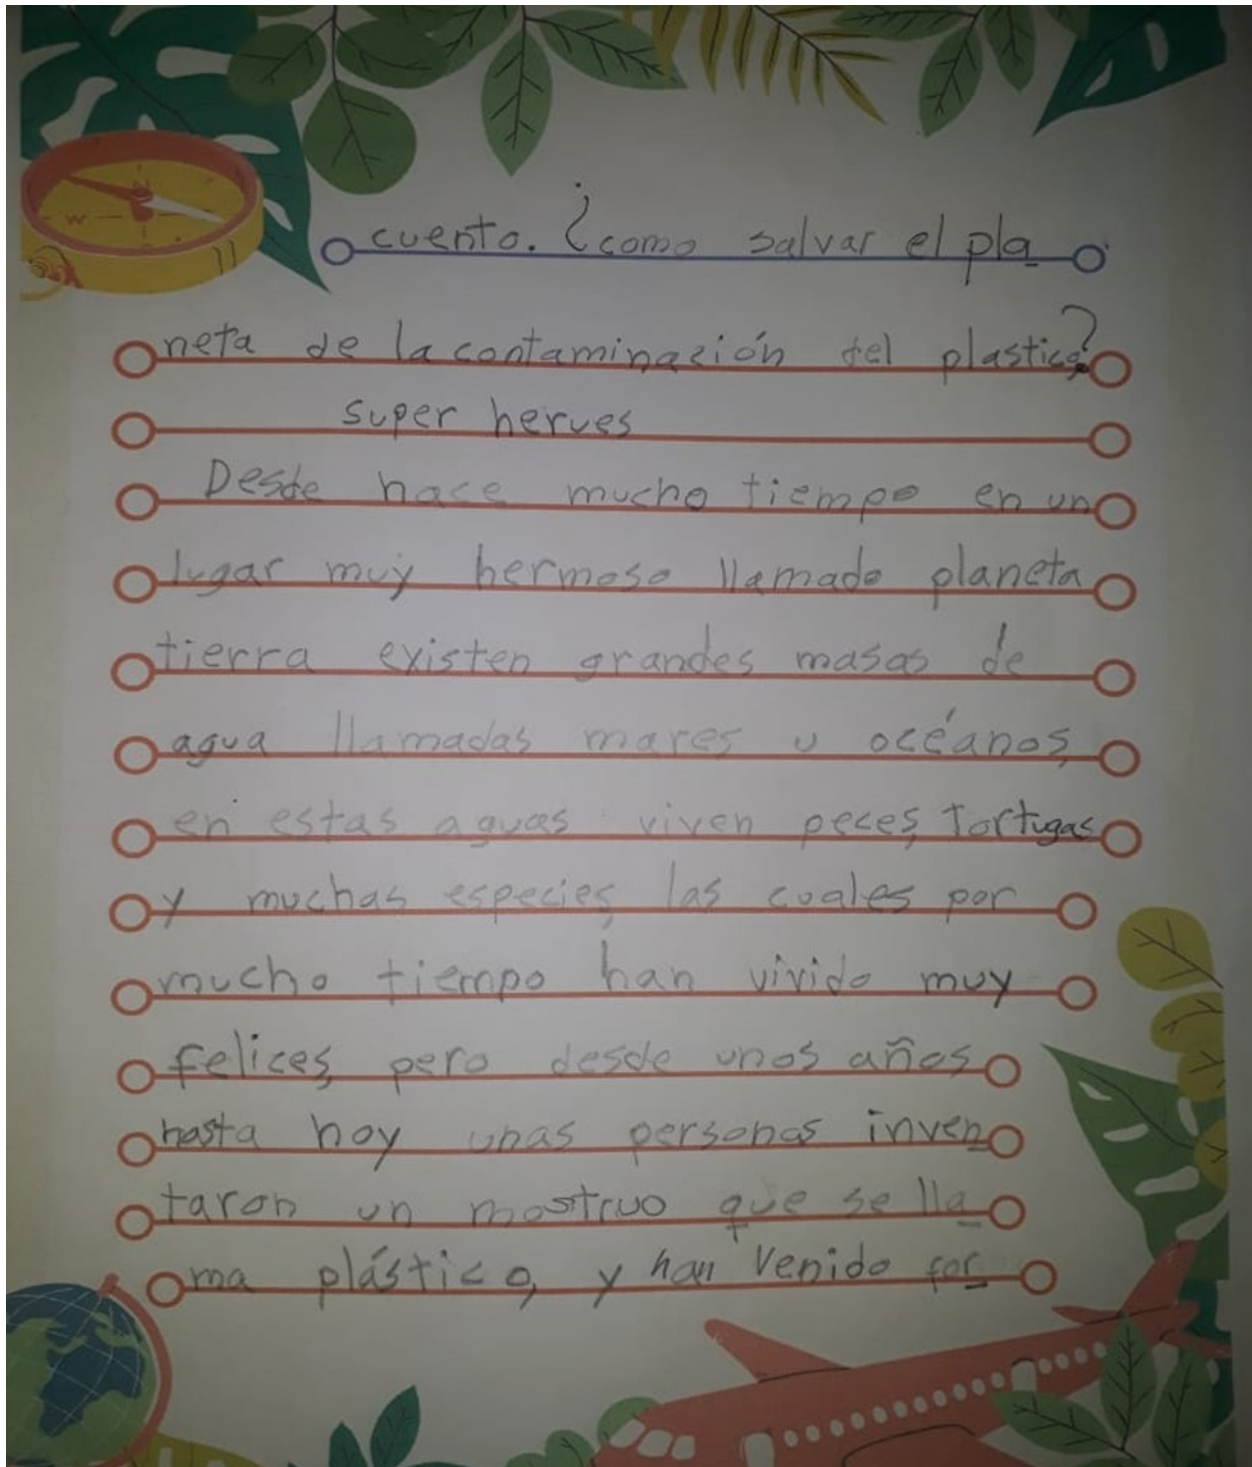 cuento. ¿como salvar el pla
neta de la contaminación del plastico?
super herues
Desde hace mucho tiempo en un
lugar muy hermoso llamado planeta
tierra existen grandes masas de
agua llamadas mares u océanos,
en estas aguas viven peces, Tortugas
y muchas especies, las cuales por
mucho tiempo han vivido muy
felices, pero desde unos años
hasta hoy unas personas inven
taron un mostruo que se lla
ma plástico, y han venido for
W